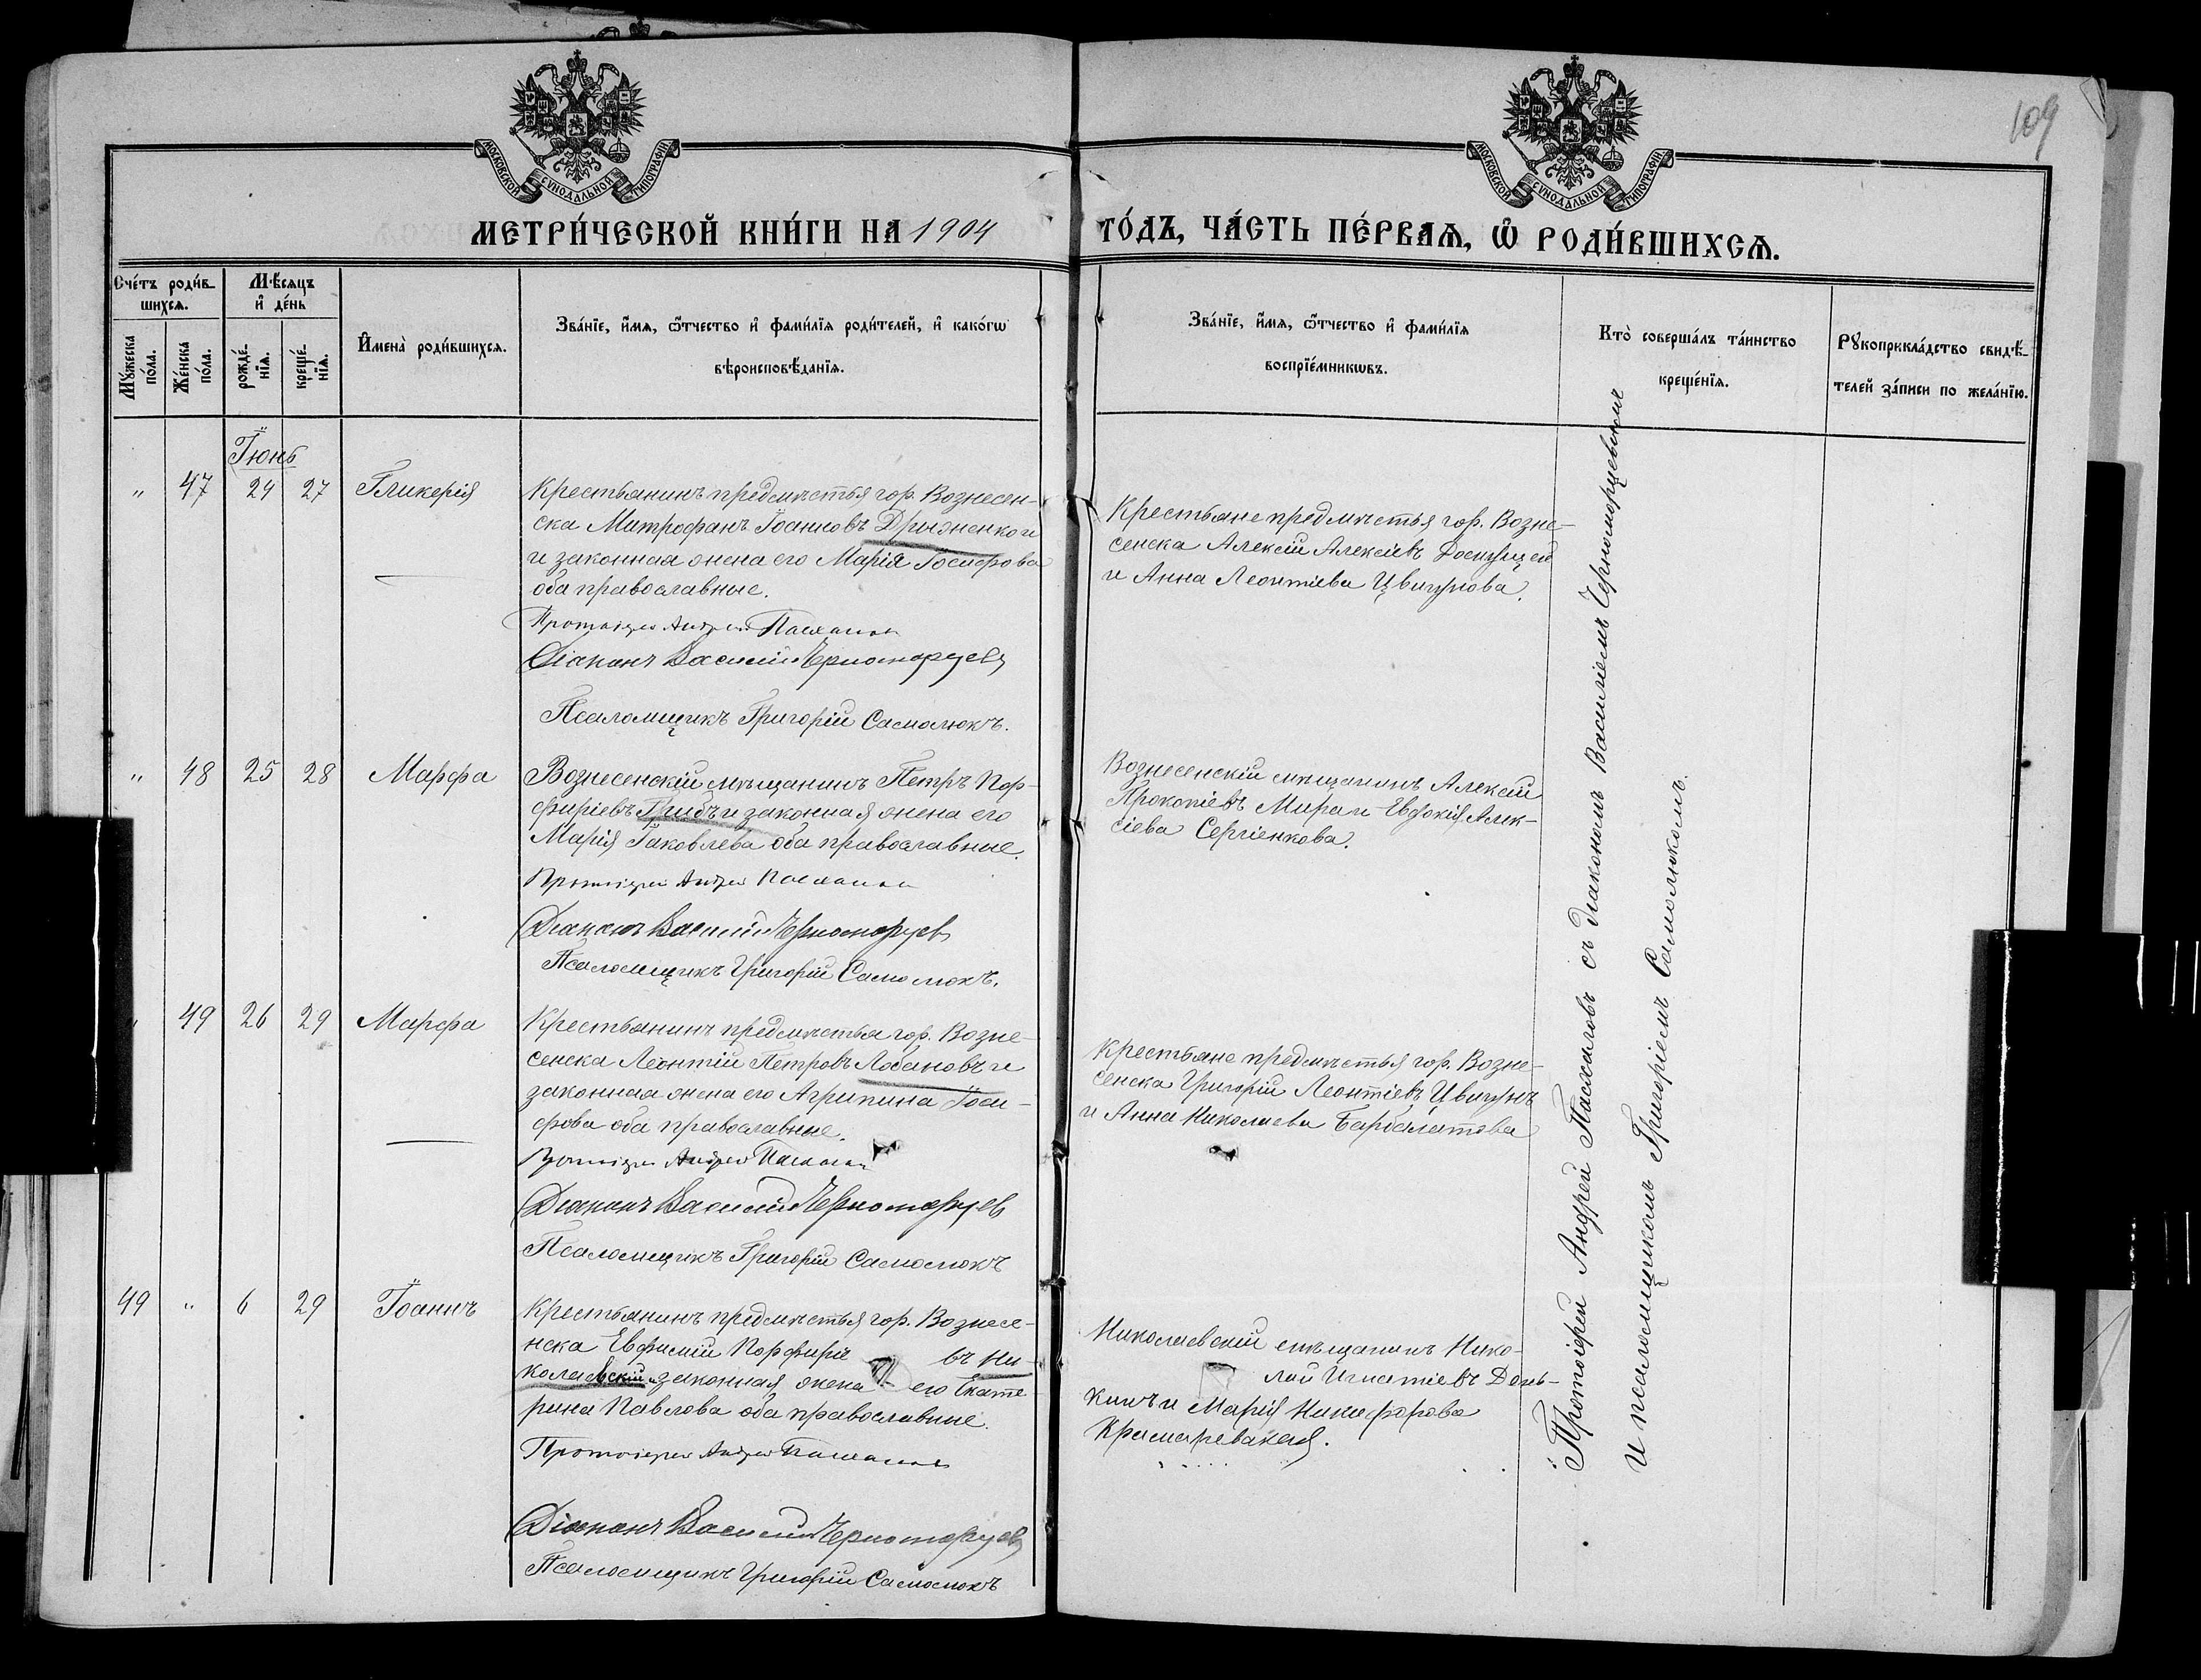 109
МОСКОВСКОЙ СѴНОДАЛЬНОЙ ТИПОГРАФІИ
МОСКОВСКОЙ СѴНОДАЛЬНОЙ ТИПОГРАФІИ
МЕТРИ́ЧЕСКОЙ КНИ́ГИ НА 1904 ГО́ДЪ, ЧА́СТЬ ПЕ́РВАѦ, Ѿ РОДИ́ВШИХСѦ.
Сче́тъ роди́вшихсѧ.
Мꙋ́жеска по́ла.
Же́нска по́ла.
Мѣ́сѧцъ и҆ де́нь
рожде́нїѧ.
креще́нїѧ.
И҆мена̀ роди́вшихсѧ.
Зва́нїе, и҆́мѧ, ѻ҆́тчество и҆ фами́лїѧ роди́телей, и҆ како́гѡ
вѣроисповѣ́данїѧ.
Зва́нїе, и҆́мѧ, ѻ҆́тчество и҆ фами́лїѧ
воспрїе́мникѡвъ.
Кто̀ соверша́лъ та́инство
креще́нїѧ.
Рꙋкоприкла́дство свидѣ́-
телей за́писи по жела́нїю.
Іюнь
" 47 24 27 Гликерія
Крестьянинъ предмѣстья гор. Вознесен-
ска Митрофанъ Іоанновъ
и законная жена его Марія Іосифова
оба православные.
Протоіерей Андрей
Діаконъ Василій Черноморцевъ
Псаломщикъ Григорій Самолюкъ.
Крестьяне предмѣстья гор. Возне-
сенска Алексій Алексіевъ
и Анна Леонтіева Цвигунова.
" 48 25 28 Марфа
Вознесенскій мѣщанинъ Петръ Пор-
фиріевъ Грибъ и законная жена его
Марія Іаковлева оба православные.
Протоіерей Андрей
Діаконъ Василій Черноморцевъ
Псаломщикъ Григорій Самолюкъ.
Вознесенскій мѣщанинъ Алексій
Прокопіевъ Мира и Евдокія Алек-
сіева Сергіенкова.
" 49 26 29 Марфа
Крестьянинъ предмѣстья гор. Возне-
сенска Леонтій Петровъ Лобановъ и
законная жена его Агрипина Іоси-
фова оба православные.
Протоіерей Андрей
Діаконъ Василій Черноморцевъ
Псаломщикъ Григорій Самолюкъ
Крестьяне предмѣстья гор. Возне-
сенска Григорій Леонтіевъ Цвигунъ
и Анна Николаева
49 " 6 29 Іоаннъ
Крестьянинъ предмѣстья гор. Вознесе-
нска Евфимій Порфиріе въ Ни-
колаевскій и законная жена его Екате
рина Павлова оба православные.
Протоіерей Андрей
Діаконъ Василій Черноморцевъ
Псаломщикъ Григорій Самолюкъ
Николаевскій мѣщанинъ Нико-
лай Игнатіевъ Донь-
кинъ и Марія Никифорова
Крамаревская.
Протоіерей Андрей с діакономъ Василіемъ Черноморцевымъ
и псаломщикомъ Григоріемъ Самолюкомъ.